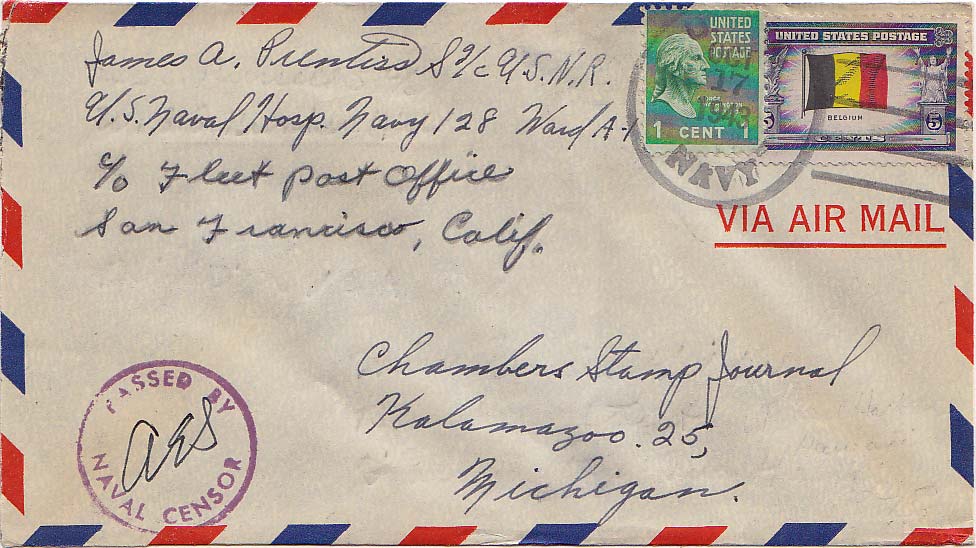 James A. Prentiss S 1/c U.S.N.R.
U.S. Naval Hosp. Navy 128 Ward A-1
c/o Fleet Post Office
San Francisco, Calif.
UNITED
STATES
POSTAGE
1 CENT 1
UNITED STATES POSTAGE
BELGIUM
5 5
CENTS
17
1943
NAVY
VIA AIR MAIL
Chambers Stamp Journal
Kalamazoo. 25,
Michigan.
PASSED BY
NAVAL CENSOR